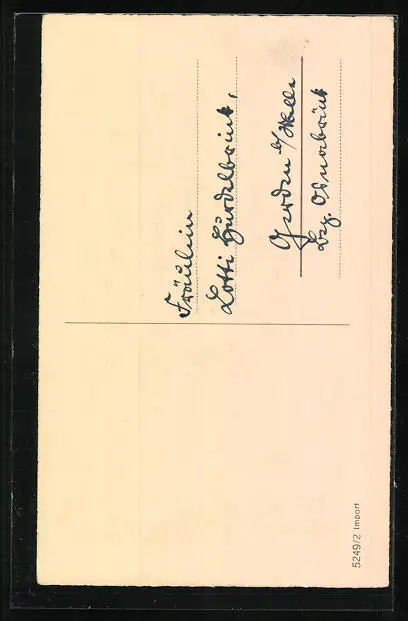 Fräulein
Lotti Hürdelbrink,
Gerden b/Melle
Bez. Osnabrück
5249/2 Import